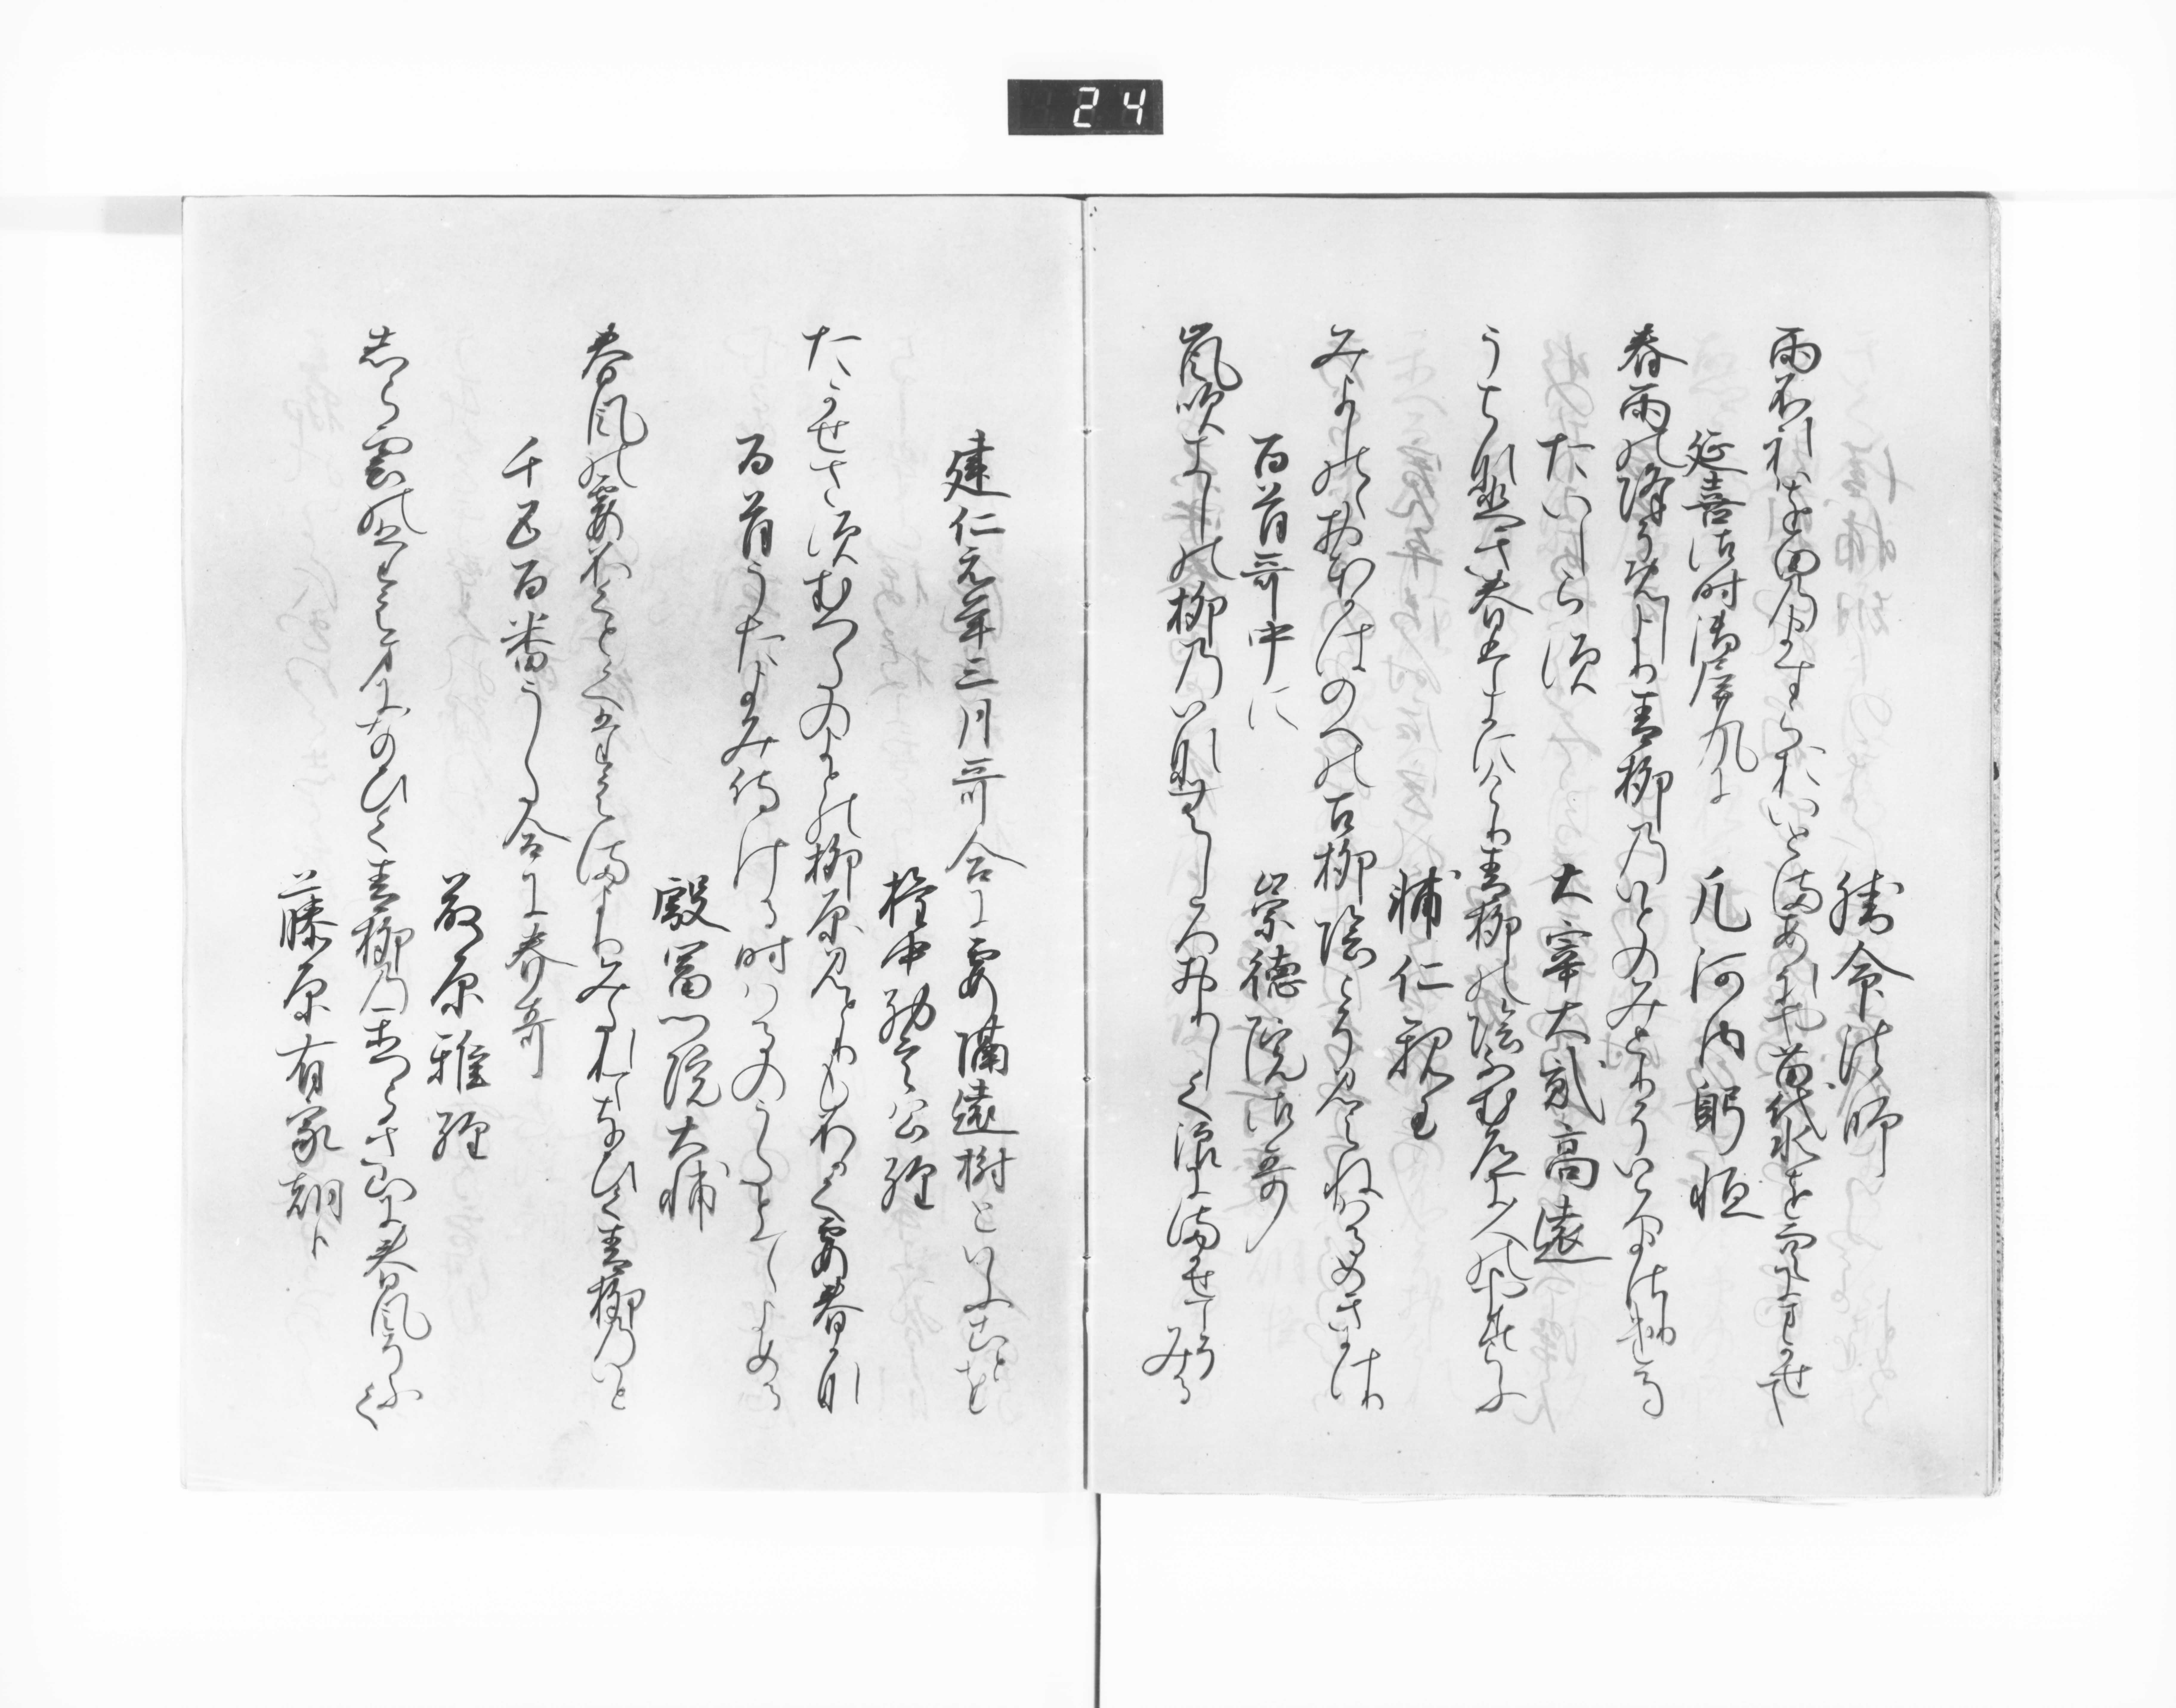 勝命法師
雨ふれはを田のますらおいとまあれや苗代水を空にまかせて
延喜御時御屏風に　凡河内躬恒
春雨の降そめしより青柳のいとのみとりそいろまさり行
たいしらす　大宰大貳高遠
うちなひき春はきにけり青柳の陰ふむ道に人のやすらふ
輔仁親王
みよしのゝおほかはのへの古柳陰こそ見えねはるめきにけり
百首哥中に　崇徳院御哥
嵐吹きしの柳乃いなむしろおりしく浪にまかせてそみる
建仁元年三月哥合に霞隔遠樹といふことを
権中納言公経
たかせさすむつたのよとの柳原みとりもふかく霞春かな
百首うたよみ侍ける時はるのうたとてよめる
殷富門院大輔
春風の霞ふきとくたえまよりみたれてなひく青柳乃いと
千五百番うた合に春哥
藤原雅経
しら雲のたえまになひく青柳乃かつらき山に春風そふく
藤原有家朝臣
24